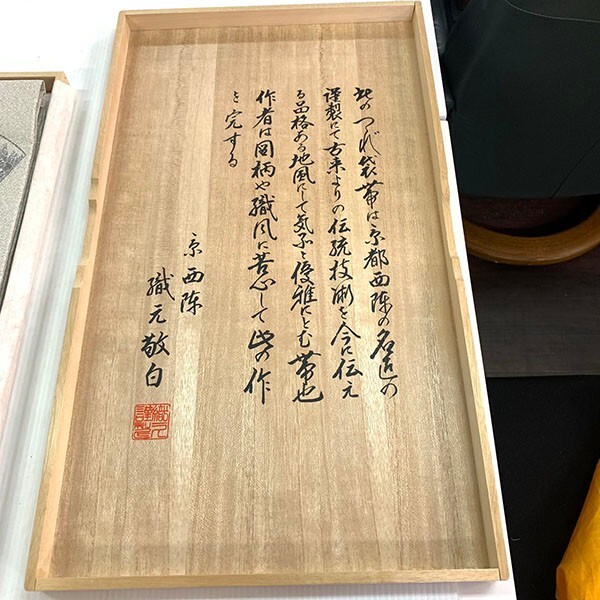 此のつづれ袋帯は京都西陣の名匠の
謹製にて古来よりの伝統技術を今に伝え
る品格ある地風にして気品と優雅にとむ帯也
作者は図柄や織風に苦心して此の作
を完する
京西陣
織元敬白
織元謹製